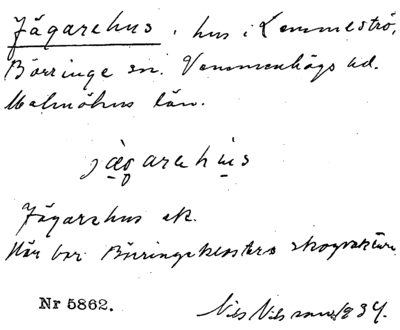 Jägarehus, hus i Lemmeströ,
Börringe sn. Vemmenhögs hd.
Malmöhus län.
jägarehus
Jägarehus ek.
Här bor Börringeklosters skogvaktare
Nr 5862.
Nils Nilsson 1934.